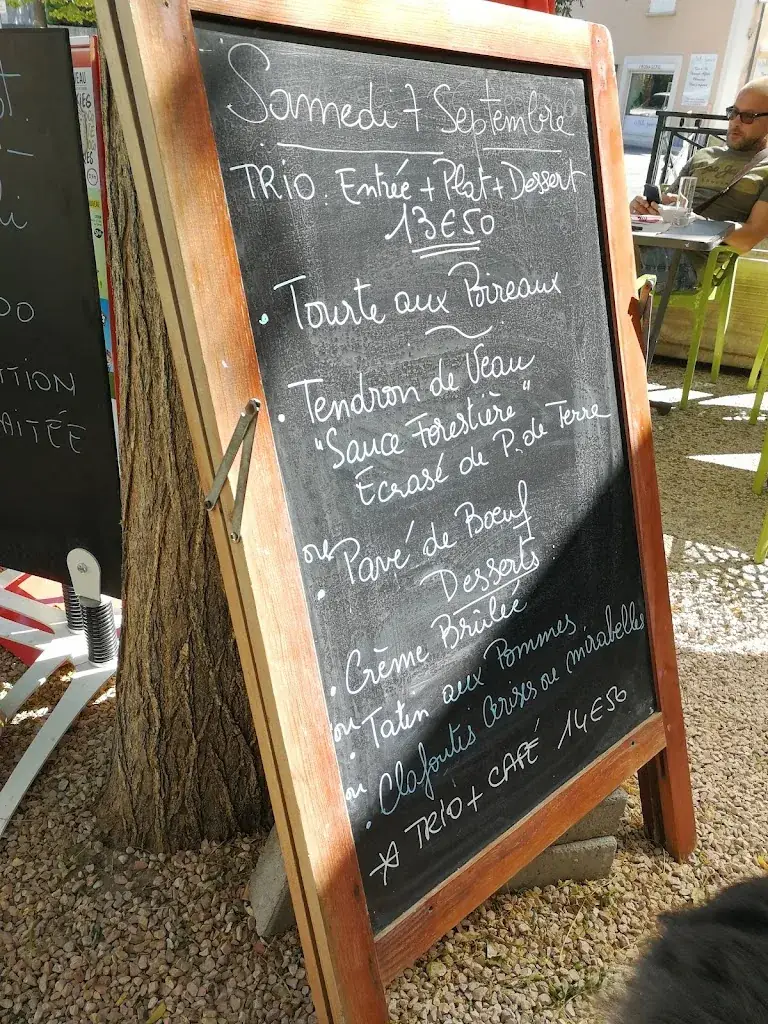 Samedi 7 Septembre
TRIO : Entrée + Plat + Dessert
13€50
• Tourte aux Poireaux
• Tendron de Veau
"Sauce Forestière"
Ecrasé de P. de Terre
ou
• Pavé de Bœuf
Desserts
• Crème Brûlée
ou
• Tatin aux Pommes
ou
• Clafoutis Cerises ou mirabelles
* TRIO + CAFÉ 14€50